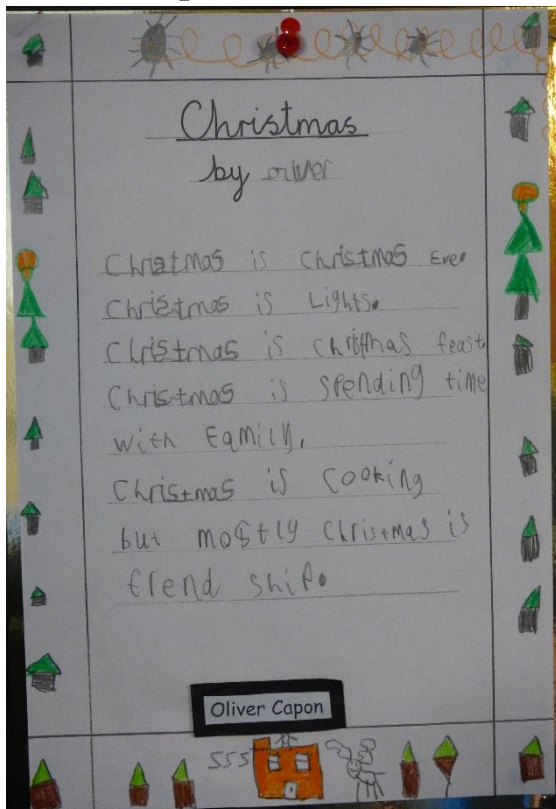 Christmas
by oliver
Christmas is Christmas Eve.
Christmas is Lights.
Christmas is christmas feast
Christmas is spending time
with Family.
Christmas is cooking
but mostly christmas is
frend ship.
Oliver Capon
SSS